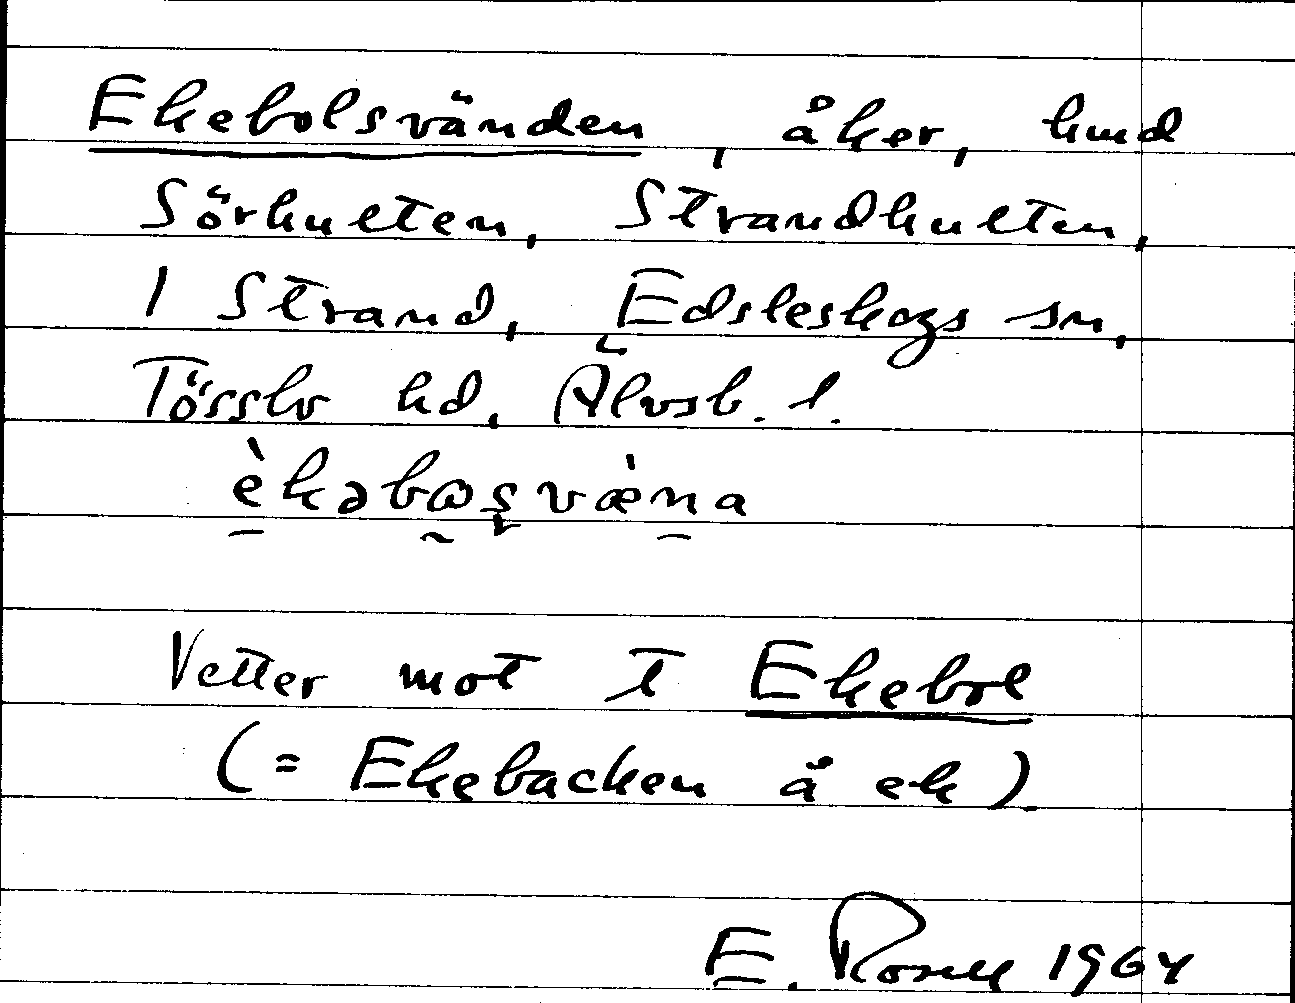 Ekebolsvänden, åker, hmd
Sörhulten, Strandhulten,
1 Strand, Edsleskogs sn,
Tössbo hd, Älvsb. l.
èkəbωșvæ̀na
Vetter mot T Ekebol
(= Ekebacken å ek)
E. Rosell 1964